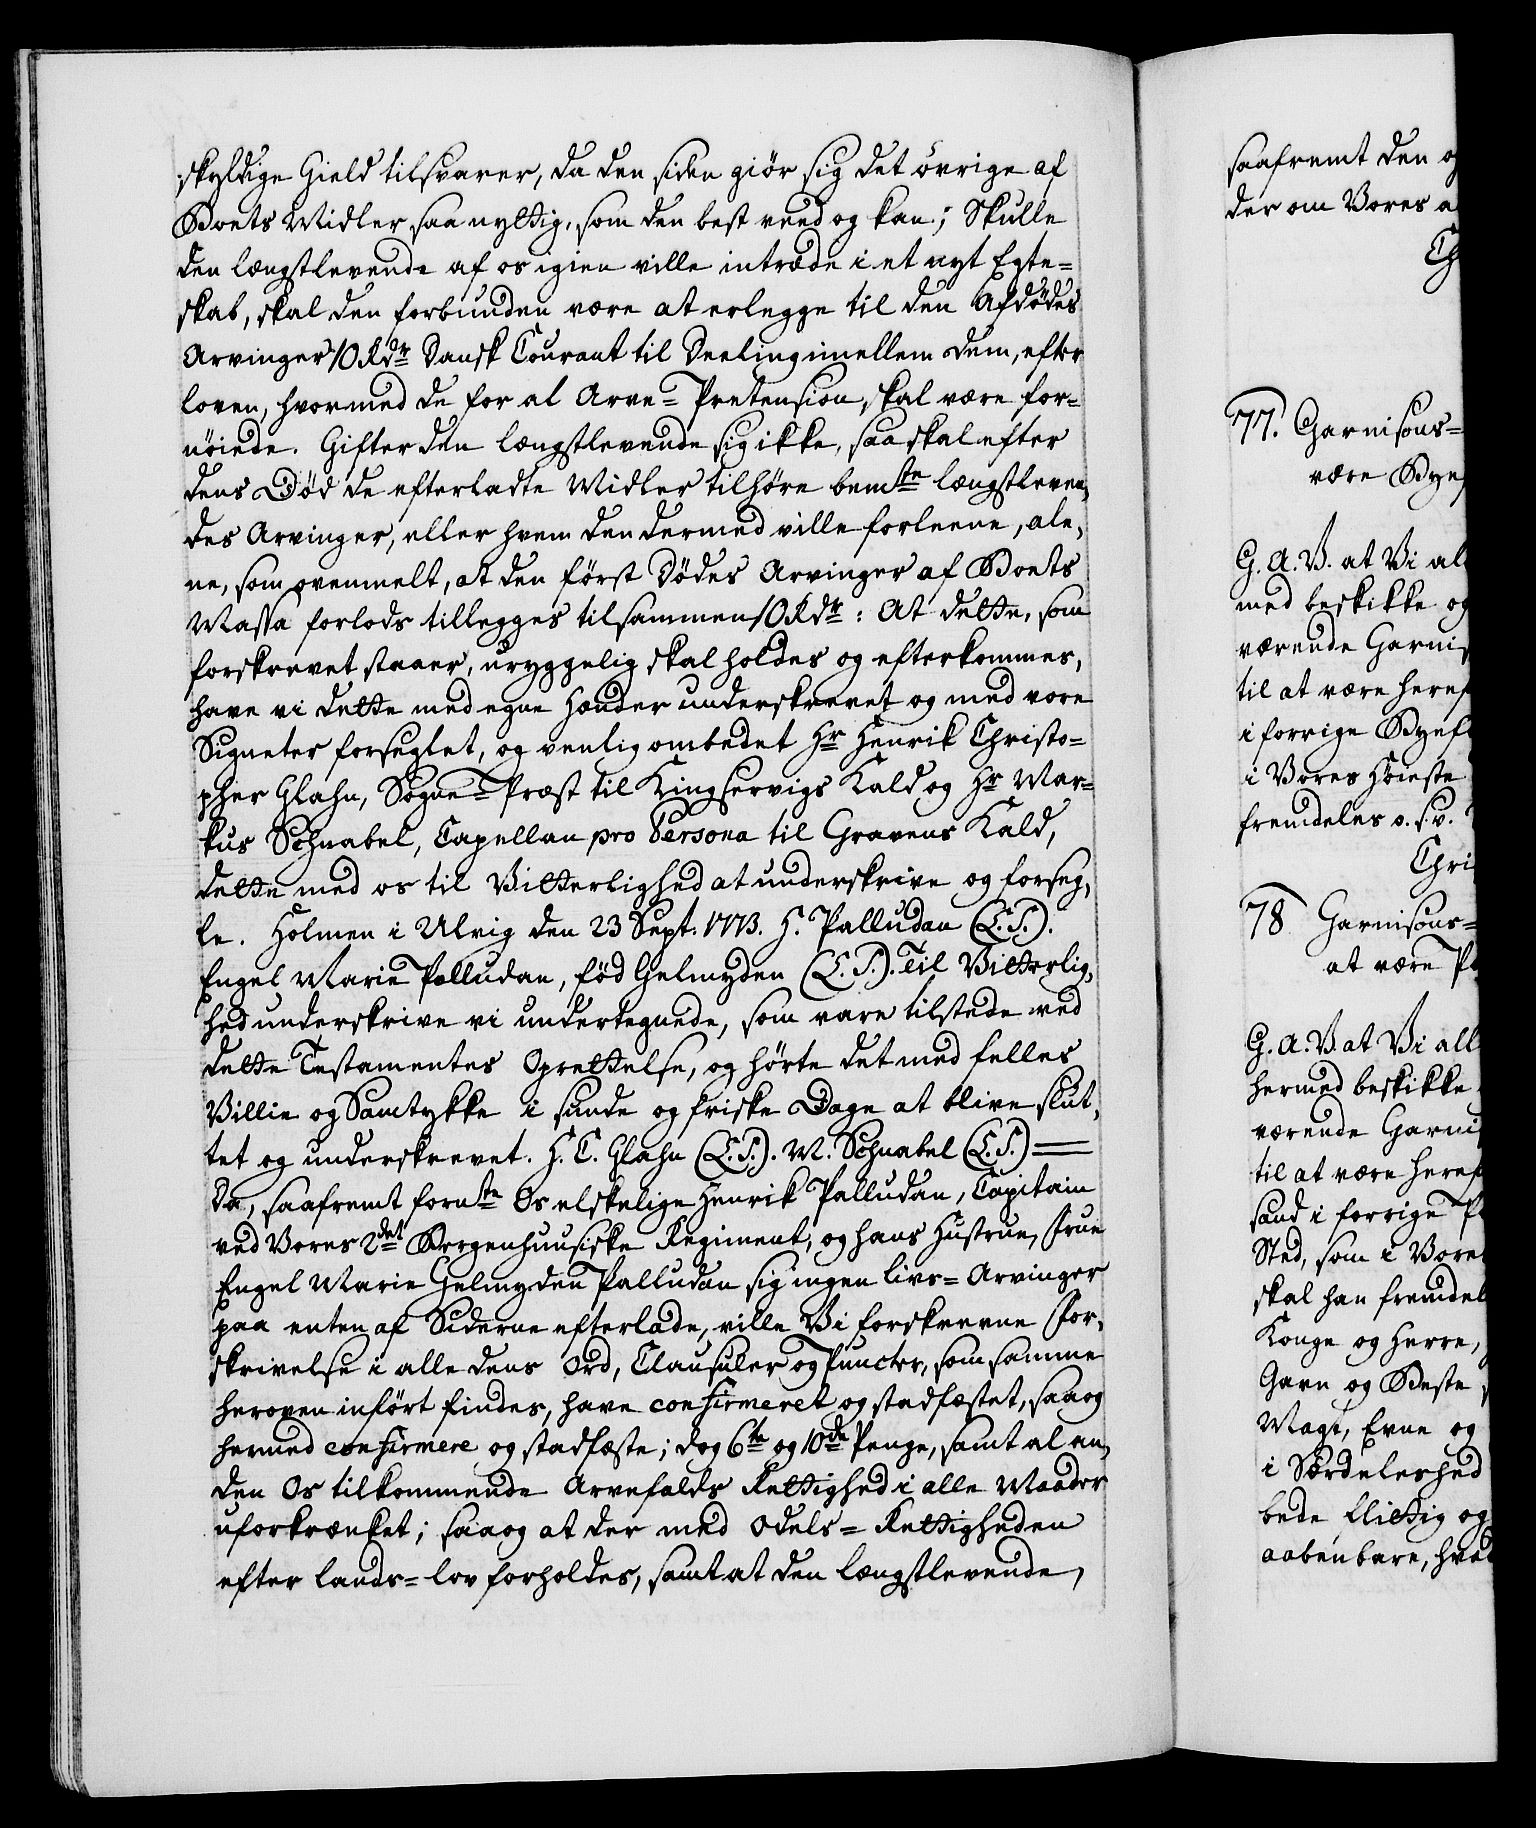 skyldige Gield tilsvarer, da den siden giör sig det övrige af
Boets Midler saa nyttig, som den best veed og kan; Skulle
den længstlevende af os igien ville intræde i et nyt Egte=
skab, skal den forbunden være at erlegge til den Afdödes
Arvinger 10 Rdr Dansk Courant til Deeling imellem dem, efter
loven, hvormed de for al Arve= Pretension skal være for=
nöiede. Gifter den længstlevende sig ikke, saa skal efter
dens Död de efterladte Midler tilhöre bemte længstleven,
des Arvinger, eller hvem den dermed ville forleene, ale,
ne, som ovenmelt, at den först Dödes Arvinger af Boets
Massa forlods tillegges tilsammen 10 Rdr: At dette, som
forskrevet staaer, uryggelig skal holdes og efterkommes,
have vi dette med egne Hænder underskrevet og med vore
Signeter forseglet, og venlig ombedet Hr Henrik Christo=
pher Glahn, Sogne=Præst til Kingservigs Kald og Hr Mar=
kus Schnabel, Capellan pro Persona til Gravens Kald,
dette med os til Vitterlighed at underskrive og forseg,
le. Holmen i Ulvig den 23 Sept. 1773. H. Palludan (L.S.).
Engel Marie Palludan, föd Gelmyden (L.S.). Til Vitterlig,
hed underskrive vi undertegnede, som vare tilstede ved
dette Testamentes Oprettelse, og hörte det med felles
Villie og Samtykke i sunde og friske Dage at blive slut,
tet og underskrevet. H. C. Glahn (L.S.). M. Schnabel (L.S.) =
Da, saafremt fornte Os elskelige Henrik Palludan, Capitain
ved Vores 2det Bergenhuusiske Regiment, og hans Hustrue, Frue
Engel Marie Gelmyden Palludan sig ingen livs= Arvinger
paa enten af Siderne efterlade, ville Vi forskrevne For,
skrivelse i alle dens Ord, Clausuler og Puncter, som samme
heroven infört findes, have confirmeret og stadfæstet, saa og
hermed confirmere og stadfæste; dog 6te og 10de Penge, samt al an,
den Os tilkommende Arvefalds Rettighed i alle Maader
uforkrænket; saa og at der med Odels= Rettigheden
efter lands= lov forholdes, samt at den længstlevende,
saafremt den og
der om Vores a
Ch
77. Garnisons=
være Byef
G. A. V. at Vi al
med beskikke og
værende Garnis
til at være heref
i forrige Byef
i Vores Höieste
fremdeles o. s. v.
Chri
78 Garnisons=
at være P
G. A. V. at Vi all
hermed beskikke
værende Garni
til at være heref
sand i forrige P
Sted, som i Vore
skal han fremdel
Konge og Herre,
Gavn og Beste
Magt, Evne og
i Særdeleshed
bede flittig og
aabenbare, hved